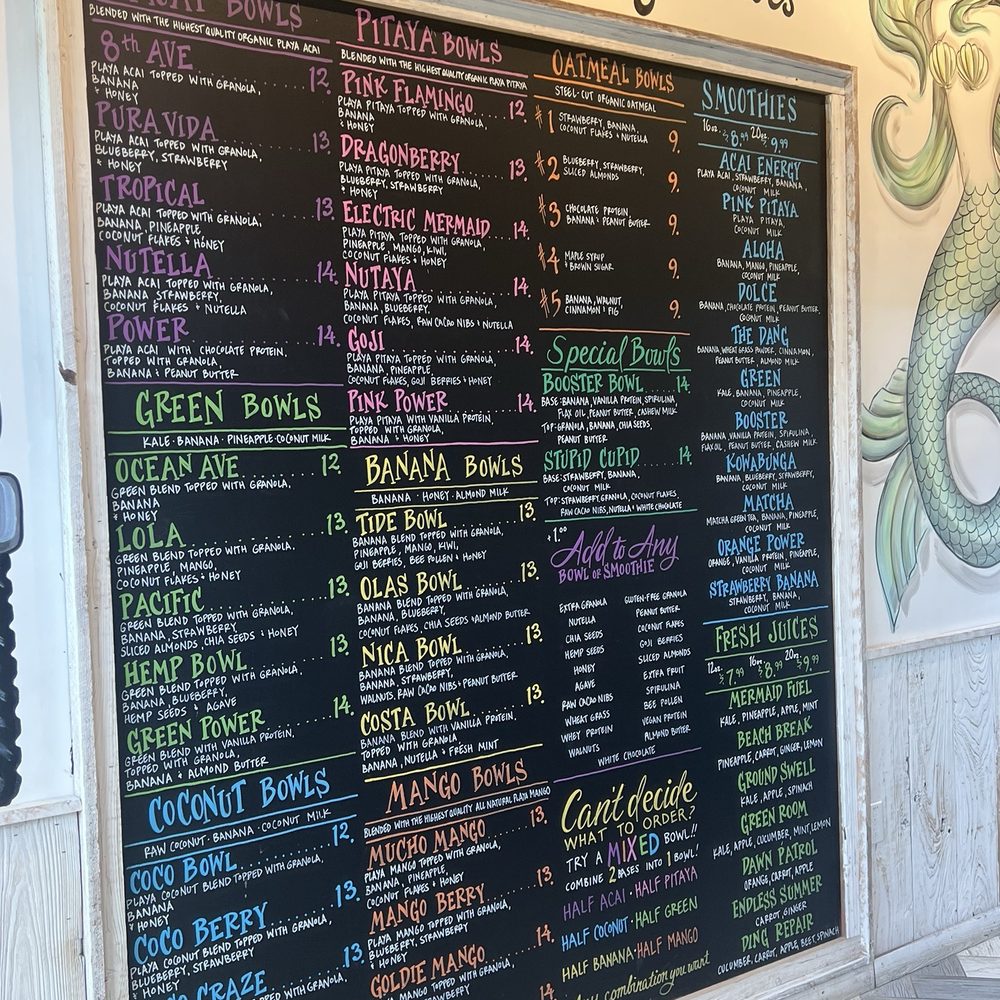 BOWLS
BLENDED WITH THE HIGHEST QUALITY ORGANIC PLAYA ACAI
8th AVE ........ 12.
PLAYA ACAI TOPPED WITH GRANOLA,
BANANA
& HONEY
PURA VIDA ........ 13
PLAYA ACAI TOPPED WITH GRANOLA,
BLUEBERRY, STRAWBERRY
& HONEY
TROPICAL ........ 13.
PLAYA ACAI TOPPED WITH GRANOLA,
BANANA, PINEAPPLE
COCONUT FLAKES & HONEY
NUTELLA ........ 14.
PLAYA ACAI TOPPED WITH GRANOLA,
BANANA STRAWBERRY,
COCONUT FLAKES & NUTELLA
POWER ........ 14.
PLAYA ACAI WITH CHOCOLATE PROTEIN.
TOPPED WITH GRANOLA,
BANANA & PEANUT BUTTER
GREEN BOWLS
KALE · BANANA · PINEAPPLE · COCONUT MILK
OCEAN AVE ........ 12.
GREEN BLEND TOPPED WITH GRANOLA,
BANANA
& HONEY
LOLA ........ 13.
GREEN BLEND TOPPED WITH GRANOLA,
PINEAPPLE, MANGO,
COCONUT FLAKES & HONEY
PACIFIC ........ 13.
GREEN BLEND TOPPED WITH GRANOLA,
BANANA, STRAWBERRY
SLICED ALMONDS, CHIA SEEDS & HONEY
HEMP BOWL ........ 13.
GREEN BLEND TOPPED WITH GRANOLA,
BANANA, BLUEBERRY,
HEMP SEEDS & AGAVE
GREEN POWER ........ 14.
GREEN BLEND WITH VANILLA PROTEIN,
TOPPED WITH GRANOLA,
BANANA & ALMOND BUTTER
COCONUT BOWLS
RAW COCONUT · BANANA · COCONUT MILK
COCO BOWL ........ 12.
PLAYA COCONUT BLEND TOPPED WITH GRANOLA,
BANANA
& HONEY
COCO BERRY ........ 13.
PLAYA COCONUT BLEND TOPPED WITH GRANOLA,
BLUEBERRY, STRAWBERRY
& HONEY
CRAZE ........ 13
COCONUT BLEND TOPPED WITH GRANOLA,
PITAYA BOWLS
BLENDED WITH THE HIGHEST QUALITY ORGANIC PLAYA PITAYA
PINK FLAMINGO ........ 12.
PLAYA PITAYA TOPPED WITH GRANOLA,
BANANA
& HONEY
DRAGONBERRY ........ 13.
PLAYA PITAYA TOPPED WITH GRANOLA,
BLUEBERRY, STRAWBERRY
& HONEY
ELECTRIC MERMAID ........ 14.
PLAYA PITAYA TOPPED WITH GRANOLA,
PINEAPPLE, MANGO, KIWI,
COCONUT FLAKES & HONEY
NUTAYA ........ 14.
PLAYA PITAYA TOPPED WITH GRANOLA,
BANANA, BLUEBERRY.
COCONUT FLAKES, RAW CACAO NIBS & NUTELLA
GOJI ........ 14.
PLAYA PITAYA TOPPED WITH GRANOLA,
BANANA, PINEAPPLE,
COCONUT FLAKES, GOJI BERRIES & HONEY
PINK POWER ........ 14.
PLAYA PITAYA WITH VANILLA PROTEIN,
TOPPED WITH GRANOLA,
BANANA & HONEY
BANANA BOWLS
BANANA · HONEY · ALMOND MILK
TIDE BOWL ........ 13.
BANANA BLEND TOPPED WITH GRANOLA,
PINEAPPLE, MANGO, KIWI,
GOJI BERRIES, BEE POLLEN & HONEY
OLAS BOWL ........ 13.
BANANA BLEND TOPPED WITH GRANOLA,
BANANA, BLUEBERRY,
COCONUT FLAKES, CHIA SEEDS & ALMOND BUTTER
NICA BOWL ........ 13
BANANA BLEND TOPPED WITH GRANOLA,
BANANA, STRAWBERRY,
WALNUTS, RAW CACAO NIBS & PEANUT BUTTER
COSTA BOWL ........ 13.
BANANA BLEND WITH VANILLA PROTEIN,
TOPPED WITH GRANOLA,
BANANA, NUTELLA & FRESH MINT
MANGO BOWLS
BLENDED WITH THE HIGHEST QUALITY ALL NATURAL PLAYA MANGO
MUCHO MANGO ........ 13.
PLAYA MANGO TOPPED WITH GRANOLA,
BANANA, PINEAPPLE,
COCONUT FLAKES & HONEY
MANGO BERRY ........ 13.
PLAYA MANGO TOPPED WITH GRANOLA,
BLUEBERRY, STRAWBERRY
& HONEY
GOLDIE MANGO ........ 14.
MANGO TOPPED WITH GRANOLA,
14.
OATMEAL BOWLS
STEEL-CUT ORGANIC OATMEAL
#1 STRAWBERRY, BANANA,
COCONUT FLAKES & NUTELLA 9.
#2 BLUEBERRY, STRAWBERRY,
SLICED ALMONDS 9.
#3 CHOCOLATE PROTEIN
BANANA & PEANUT BUTTER 9.
#4 MAPLE SYRUP
& BROWN SUGAR 9.
#5 BANANA, WALNUT
CINNAMON & FIG 9.
Special Bowls
BOOSTER BOWL ...... 14.
BASE: BANANA, VANILLA PROTEIN, SPIRULINA
FLAX OIL, PEANUT BUTTER, CASHEW MILK
TOP: GRANOLA, BANANA, CHIA SEEDS,
PEANUT BUTTER
STUPID CUPID ...... 14.
BASE: STRAWBERRY, BANANA,
COCONUT MILK
TOP: STRAWBERRY, GRANOLA, COCONUT FLAKES
RAW CACAO NIBS, NUTELLA & WHITE CHOCOLATE
+1.00
Add to Any
BOWL OR SMOOTHIE
EXTRA GRANOLA
NUTELLA
CHIA SEEDS
HEMP SEEDS
HONEY
AGAVE
RAW CACAO NIBS
WHEAT GRASS
WHEY PROTEIN
WALNUTS
GLUTEN-FREE GRANOLA
PEANUT BUTTER
COCONUT FLAKES
GOJI BERRIES
SLICED ALMONDS
EXTRA FRUIT
SPIRULINA
BEE POLLEN
VEGAN PROTEIN
ALMOND BUTTER
WHITE CHOCOLATE
Can't decide
WHAT TO ORDER?
TRY A MIXED BOWL!!
COMBINE 2 BASES INTO 1 BOWL!
HALF ACAI · HALF PITAYA
HALF COCONUT · HALF GREEN
HALF BANANA · HALF MANGO
Any combination you want
SMOOTHIES
16oz. $8.99 20oz. $9.99
ACAI ENERGY
PLAYA ACAI, STRAWBERRY, BANANA,
COCONUT MILK
PINK PITAYA
PLAYA PITAYA,
COCONUT MILK
ALOHA
BANANA, MANGO, PINEAPPLE,
COCONUT MILK
DOLCE
BANANA, CHOCOLATE PROTEIN, PEANUT BUTTER,
COCONUT MILK
THE DANG
BANANA, WHEAT GRASS POWDER, CINNAMON,
PEANUT BUTTER, ALMOND MILK
GREEN
KALE, BANANA, PINEAPPLE,
COCONUT MILK
BOOSTER
BANANA, VANILLA PROTEIN, SPIRULINA,
FLAX OIL, PEANUT BUTTER, CASHEW MILK
KOWABUNGA
BANANA, BLUEBERRY, STRAWBERRY,
COCONUT MILK
MATCHA
MATCHA GREEN TEA, BANANA, PINEAPPLE,
COCONUT MILK
ORANGE POWER
ORANGE, VANILLA PROTEIN, PINEAPPLE,
COCONUT MILK
STRAWBERRY BANANA
STRAWBERRY, BANANA,
COCONUT MILK
FRESH JUICES
12oz. $7.99 16oz $8.99 20oz $9.99
MERMAID FUEL
KALE, PINEAPPLE, APPLE, MINT
BEACH BREAK
PINEAPPLE, CARROT, GINGER, LEMON
GROUND SWELL
KALE, APPLE, SPINACH
GREEN ROOM
KALE, APPLE, CUCUMBER, MINT, LEMON
DAWN PATROL
ORANGE, CARROT, APPLE
ENDLESS SUMMER
CARROT, GINGER
DING REPAIR
CUCUMBER, CARROT, APPLE, BEET, SPINACH